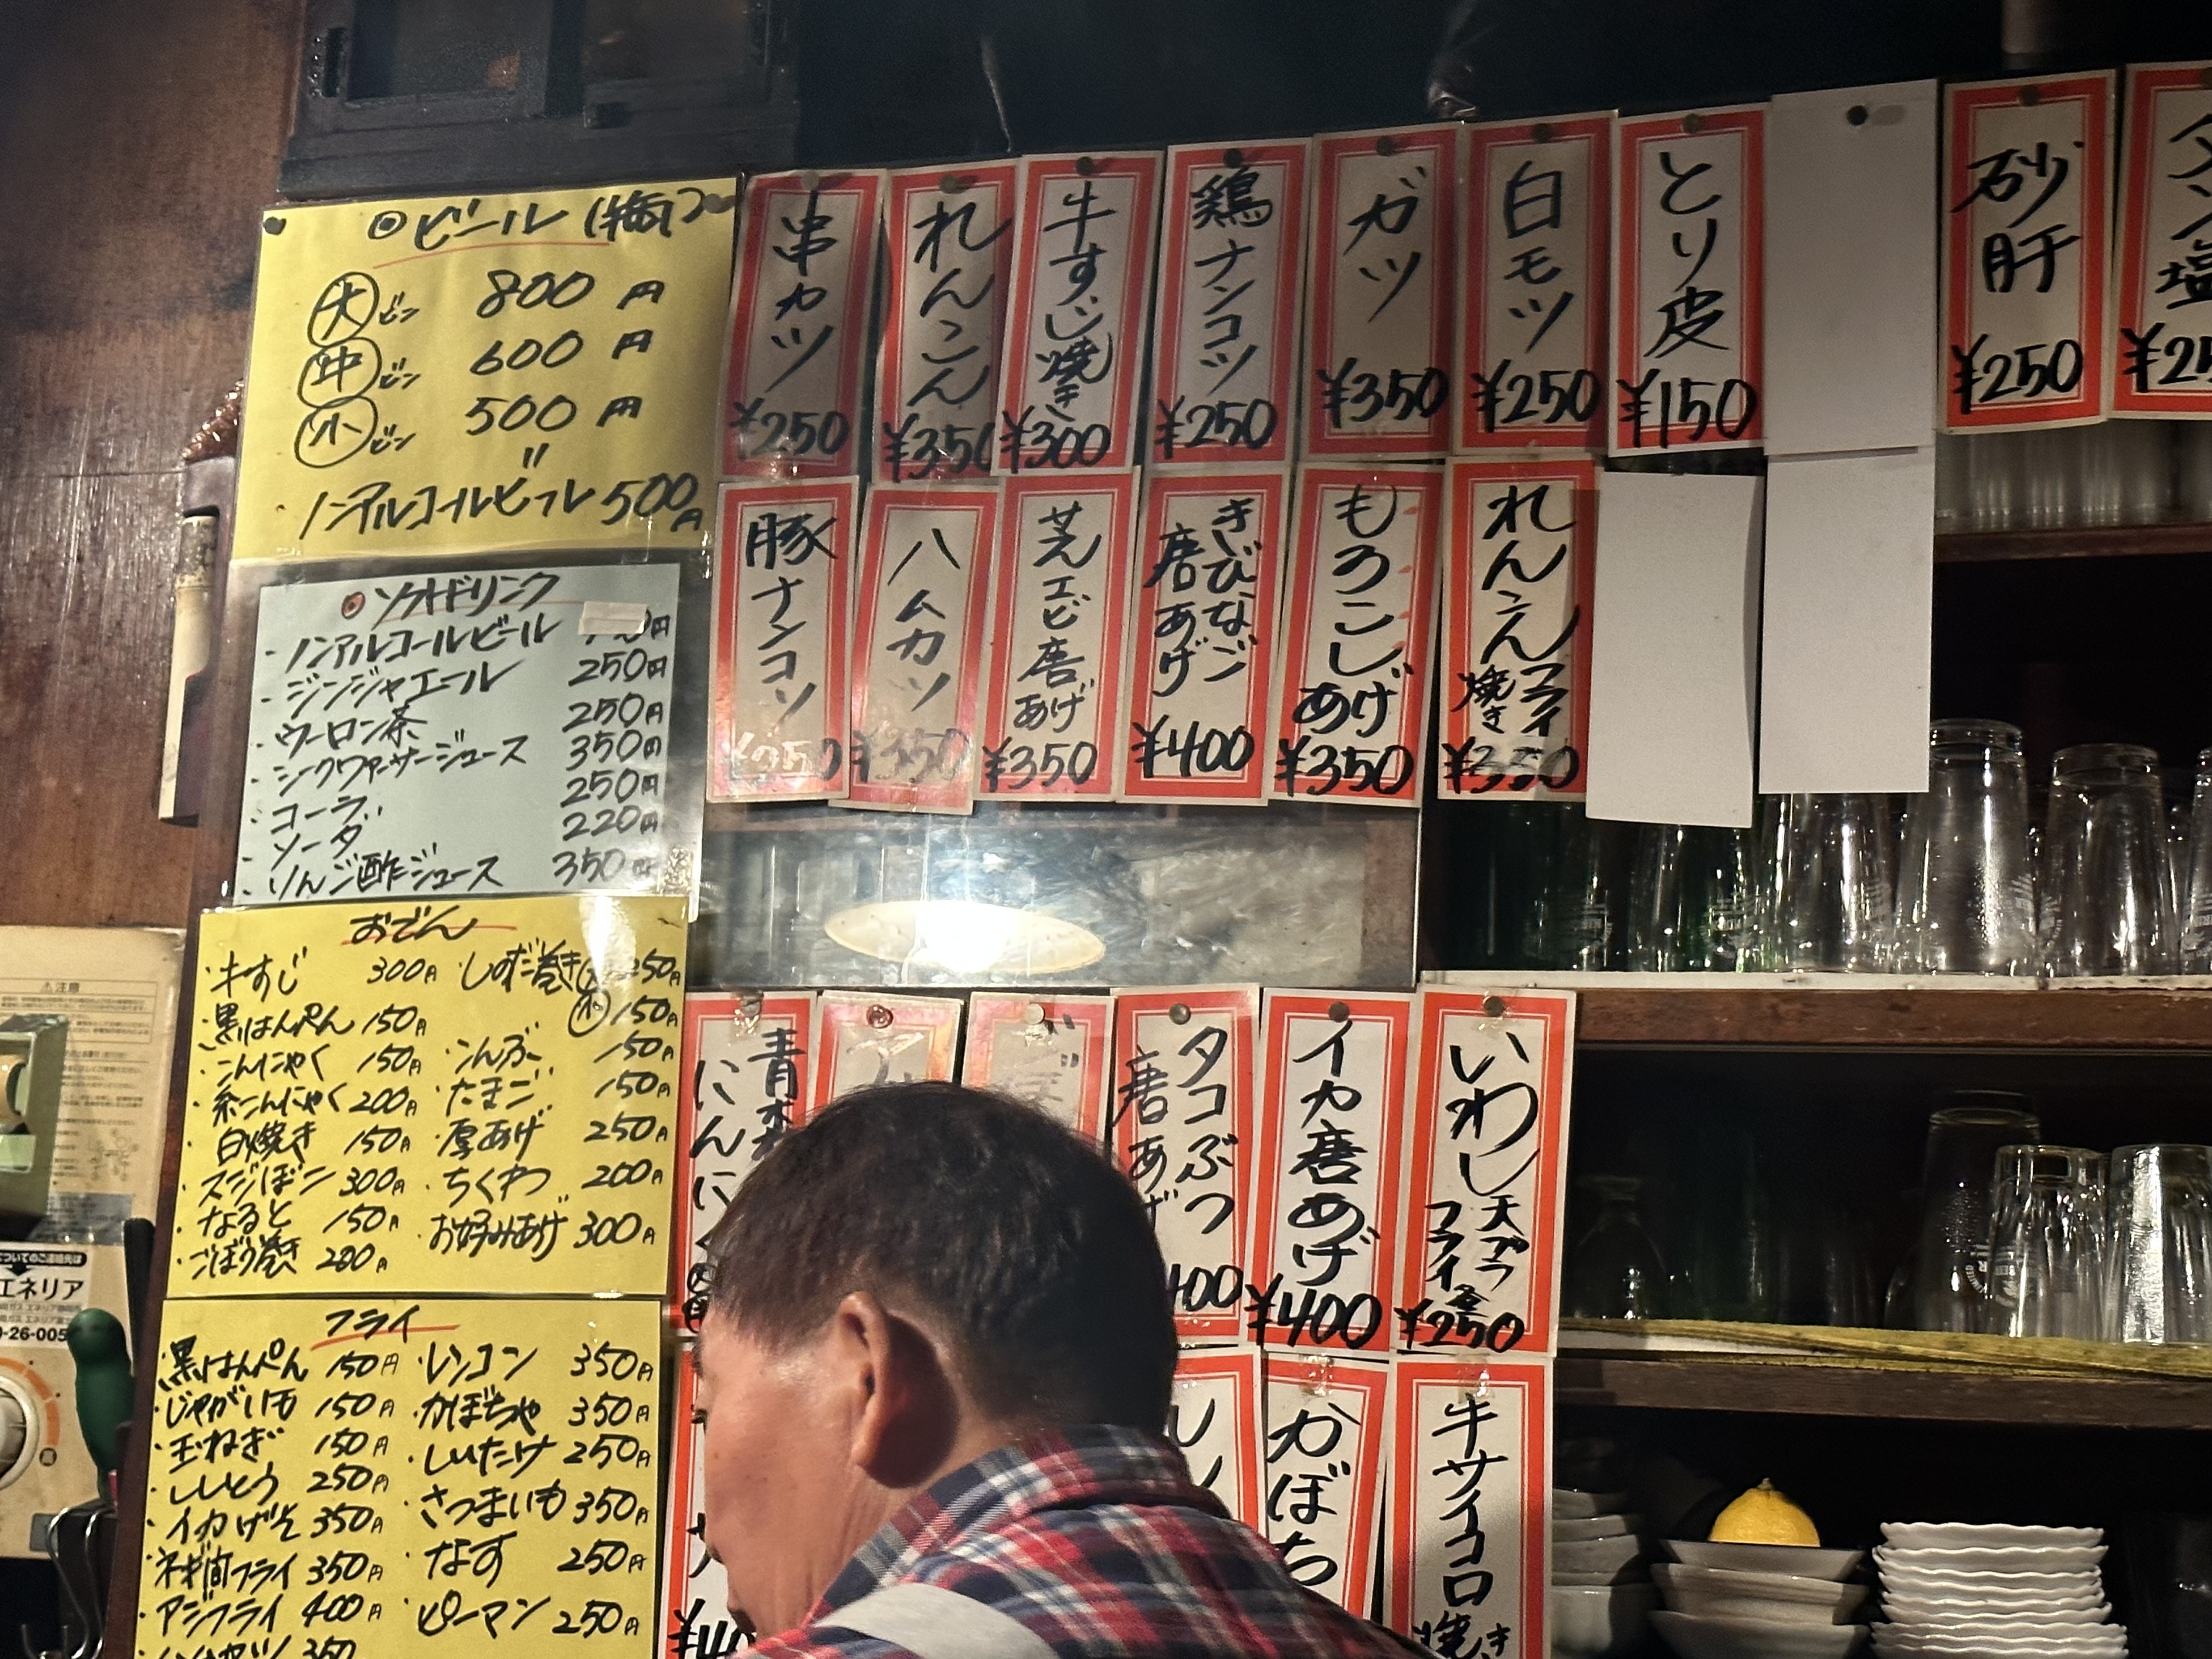 ◎ビール
大ビン 800円
中ビン 600円
小ビン 500円
ノンアルコールビール 500円
◎ソフトドリンク
・ノンアルコールビール 円
・ジンジャエール 250円
・ウーロン茶 250円
・シークヮーサージュース 350円
・コーラ 250円
・ソーダ 220円
・りんご酢ジュース 350円
おでん
・牛すじ 300円
・黒はんぺん 150円
・こんにゃく 150円
・糸こんにゃく 200円
・白焼き 150円
・スジぼこ 300円
・なると 150円
・ごぼう巻き 200円
・しのだ巻き 250円
小 150円
・こんぶ 150円
・たまご 150円
・厚あげ 250円
・ちくわ 200円
・お好みあげ 300円
フライ
・黒はんぺん 150円
・じゃがいも 150円
・玉ねぎ 150円
・ししとう 250円
・イカげそ 350円
・ネギ間フライ 350円
・アジフライ 400円
350
・レンコン 350円
・かぼちゃ 350円
・しいたけ 250円
・さつまいも 350円
・なす 250円
・ピーマン 250円
串カツ
¥250
れんこん
¥350
牛すじ焼き
¥300
鶏ナンコツ
¥250
ガツ
¥350
白モツ
¥250
とり皮
¥150
砂肝
¥250
タン塩
豚ナンコツ
¥350
ハムカツ
¥350
芝エビ唐あげ
¥350
きびなご
唐あげ
¥400
もろこしあげ
¥350
れんこん
フライ
焼き
¥350
青森
にんにく
タコぶつ
唐あげ
400
イカ唐あげ
¥400
いわし
天プラ
フライ
¥250
かぼち
牛サイコロ
焼き
注意
エネリア